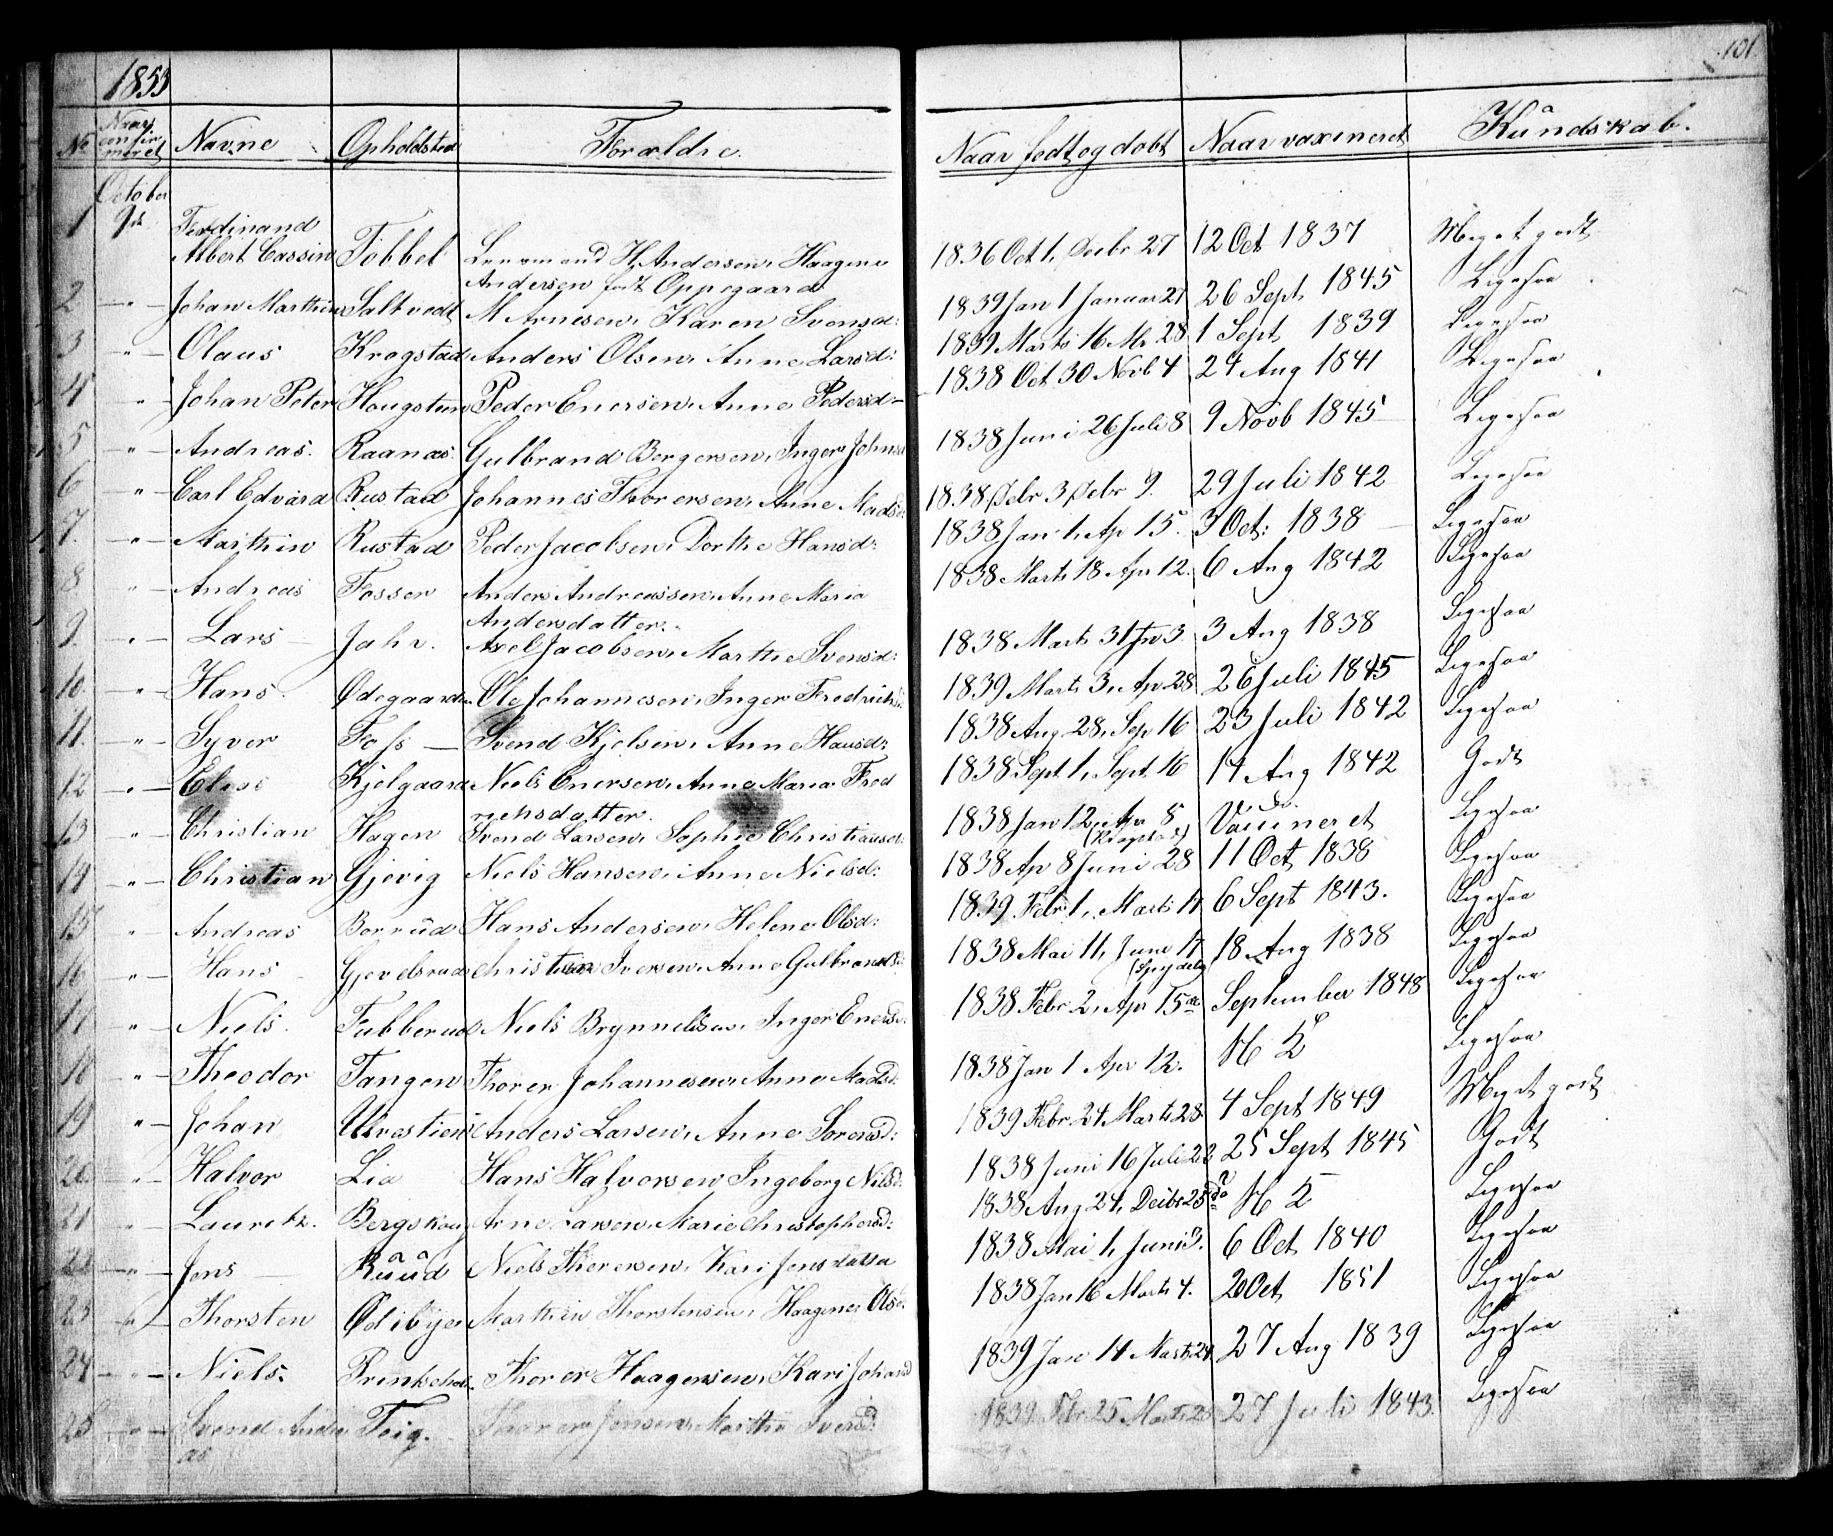 1853
101.
No Naar confirmeret Navne Opholdsted Forældre. Naar født og døbt Naar vaxineret Kundskab.
October
1 9de Ferdinand
Albert Cassin Tobbel H. Andersen, Haagine 1836 Oct 1, Decbr 27 12 Oct 1837 Meget godt
Andersen født Oppegaard
2 -"- Johan Marthin Saltvedt M Arnesen, Karen Svensd: 1839 Jan 1 Januar 27 26 Sept 1845 Ligesaa
3 -"- Olaus Krogstad Anders Olsen, Anne Larsd: 1839 Marts 16 Mr 28 1 Sept 1839 Ligesaa
4 -"- Johan Peter Haugsteen Peder Enersen, Anne Pedersd- 1838 Oct 30 Novb 4 24 Aug 1841 Ligesaa
5 -"- Andreas. Raanas Gulbrand Bergersen, Inger Johnsd 1838 Juni 26 Juli 8 9 Novb 1845 Ligesaa
6 -"- Carl Edvard Rustad Johannes Thorersen, Anne Madsd: 1838, Debr 3 Debr 9. 29 Juli 1842 Ligesaa
7. -"- Marthin Rustad Peder Jacobsen, Dorthe Hansd: 1838 Jan 1, Ap 15. 3 Oct: 1838 Ligesaa
8 -"- Andreas Fosser Anders Andreassen, Anne Maria 1838 Marts 18 Apr 12. 6 Aug 1842 Ligesaa
Andersdatter.
9. -"- Lars Jahr. Axel Jacobsen, Marthe Svensd: 1838 Marts 31 Jn 3. 3 Aug 1838 Ligesaa
10 -"- Hans. Ødegaarden Ole Johannesen, Inger Fredrichsd 1839 Marts 3, Ap 28 26 Juli 1845 Ligesaa
11. -"- Syver Foss Svend Kjelsen, Anne Hansd: 1838 Aug 28, Sep 16 23 Juli 1842 Ligesaa
12 -"- Elias Kjelgaard Niels Enersen, Anne Maria Fred 1838 Sept 1, Sept 16 14 Aug 1842 Godt
richsdatter.
13 -"- Christian Hagen Svend Larsen, Sophie Christiansd: 1838 Jan 12, Apr 8 Vaccineret Ligesaa
14 -"- Christian Gjevig Niels Hansen, Anne Nielsd: 1838 Ap 8 Juni 28 11 Oct 1838 Ligesaa
15 " Andreas Borrud Hans Andersen, Helene Olsd: 1839 Febr 1, Marts 17 6 Sept 1843. Ligesaa
16 -"- Hans Gjevelsrud Christian Iversen, Anne Gulbrandsd: 1838 Mai 11, Juni 17 18 Aug 1838 Ligesaa
17 -"- Niels. Fubberud Niels Brynnelsen, Inger Enersd: 1838 Febr 2, Apr 15de September 1848 Ligesaa
18 -"- Theodor Tangen Thorer Johannesen, Anne Madsd: 1838 Jan 1 Apr 12. Ligesaa
19 -"- Johan Anders Larsen, Anne Sørensd: 1839 Febr 24 Marts 28 4 Sept 1849 Meget godt
20. -"- Halvor Lia Hans Halvorsen Ingeborg Nilsd: 1838 Juni 16 Juli 22 25 Sept 1845 Godt
21 -"- Lauritz. Bergskaug Arne Larsen, Marie Christophersd: 1838 Aug 24, Deibr 25 Ligesaa
22 -"- Jens Ruud Niels Thorersen, Kari Jensdatter 1838 Mai 1, Juni 3. 6 Oct 1840 Ligesaa
23 -"- Thorsten Ødibye Marthin Thorstensen, Haagine Olsd: 1838 Jan 16 Marts 4. 20 Oct 1851 Ligesaa
24 -"- Niels. Thorer Haagensen, Kari Johansd 1839 Jan 14 Marts 24 27 Aug 1839 Ligesaa
25 -"- Svend Andre Teig. Thorer Jensen, Marthe Iversd: 1839 Febr 25 Marts 27 Juli 1843 Ligesaa
as